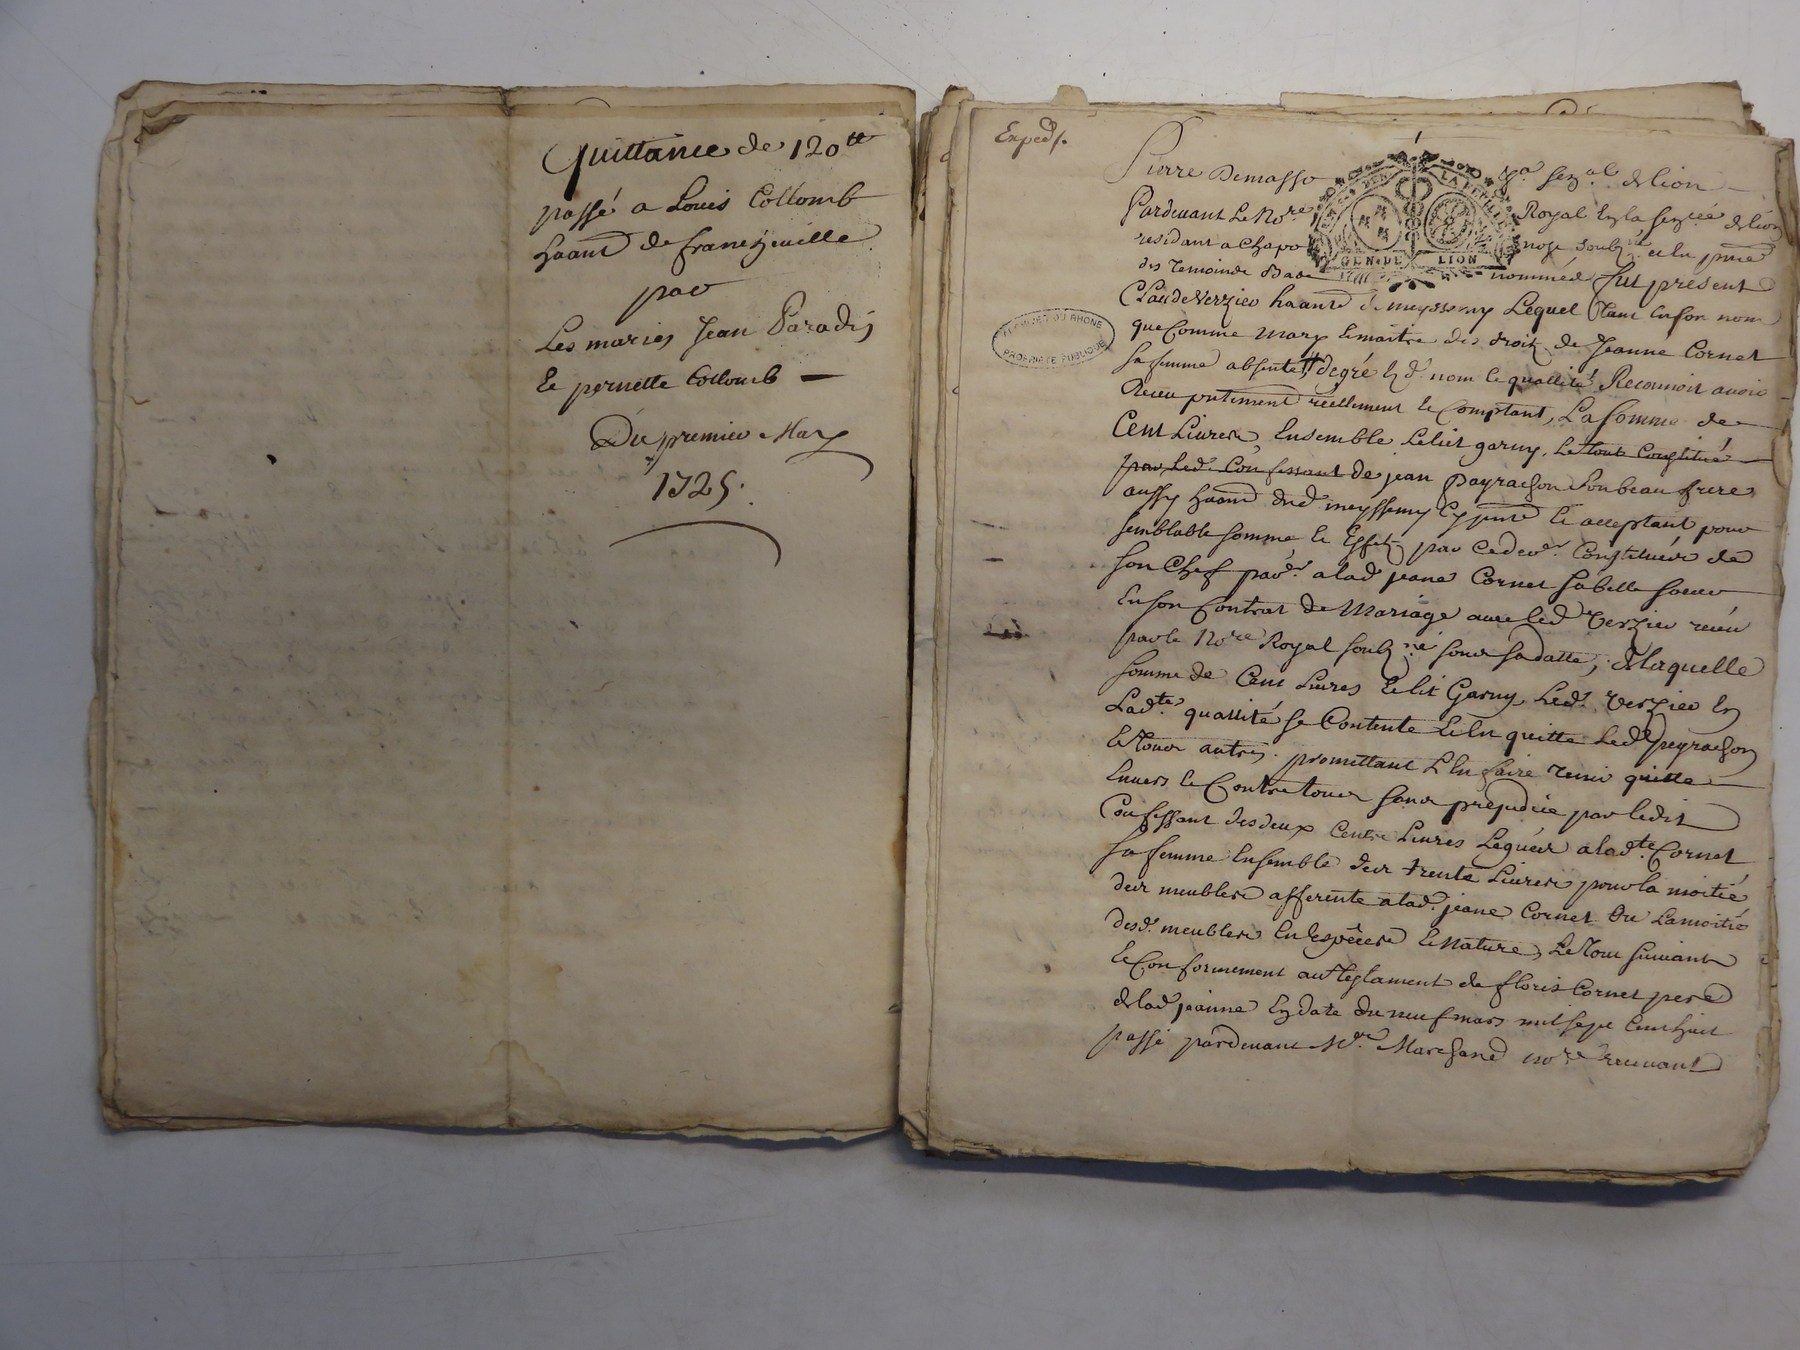 Quittance de 120 tt
passé a Louis Collomb
haant de francheuille
par
Les mariés Jean Paradis
Et pernette Collomb —
Du premier Mars
1725.
Exped/.
Pierre Demasso
senal. de lion
Pardeuant Le Nore.
Royal
de lion
residant a Chapo
des temoins
nommés fut present
GEN. DE LION
Claude Verzieu haant de meyssemy Lequel tant en son nom
que Comme Mary Et maitre des droits de Jeanne Cornet
sa femme absente, degré nom Et quallité Reconnoit auoir
Receu reellement Et Comptant, La somme de
Cent Liures Ensemble Le lit garny, Le Tout Constitué
par led. Confessant de jean payrachon son beau frere
aussy haant dud. meyssemy Et acceptant pour
semblable somme Et Effets par Constitués de
son Chef a lad. jeane Cornet sa belle soeur
En son Contrat de Mariage auec led. Verzieu receu
par le Nore. Royal soubz.né sous sa datte, de laquelle
somme de Cent Liures Et lit Garny Led. Verzieu En
Lad.te quallité se Contente Et En quitte Led. peyrachon
Et Tous autres. promettant L'En faire tenir quitte
Enuers Et Contre tous sans prejudice par ledit
Confessant des deux Cents Liures Legués a lad.te Cornet
sa femme Ensemble des trente Liures pour la moitié
des meubles afferente a lad. jeane Cornet Ou La moitié
desd. meubles En Especes Et Nature, Le Tout suiuant
Et Conformement au Reglament de floris Cornet pere
de lad. jeanne En date du neuf mars mil sept Cent huit
passé pardeuant Me. Marchand nore. receuant
DU RHONE
PROPRIETE PUBLIQUE